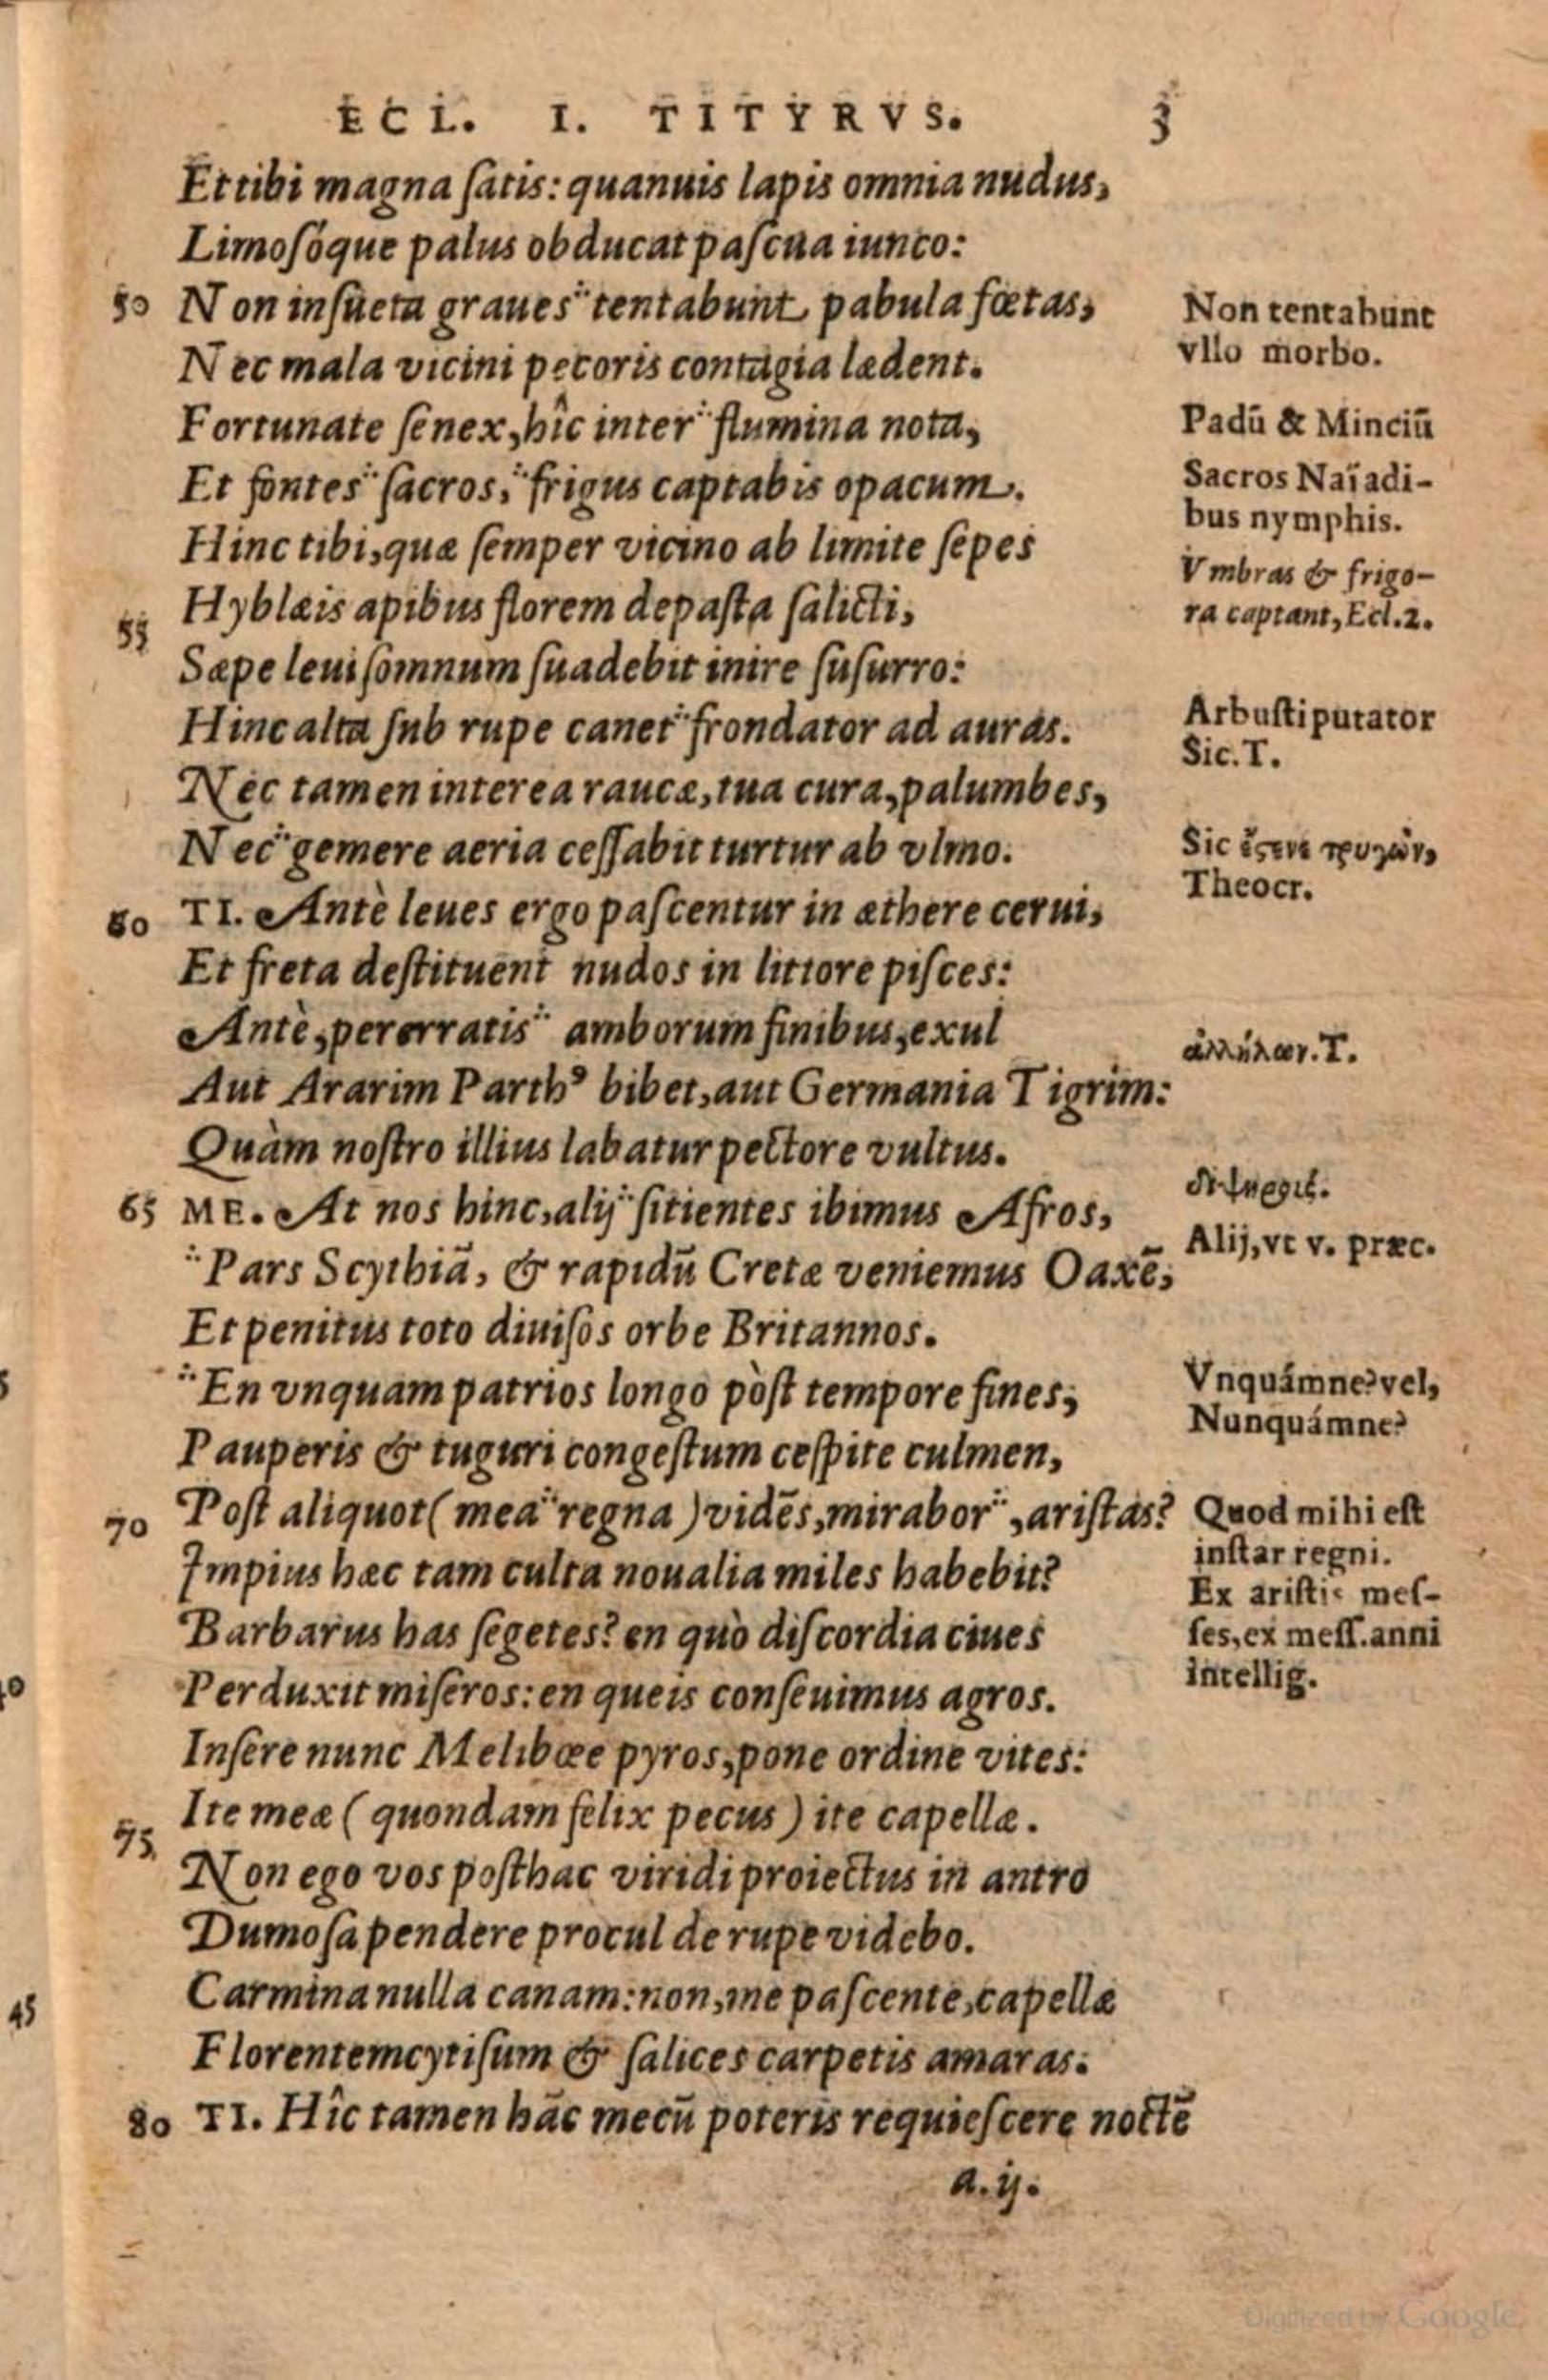 ECL. I. TITYRVS. 3
Et tibi magna ſatis: quanuis lapis omnia nudus,
Limoſóque palus obducat paſcua iunco:
50 Non inſueta graues tentabunt pabula fœtas,
Nec mala vicini pecoris contagia lædent.
Fortunate ſenex, hîc inter flumina nota,
Et fontes ſacros, frigus captabis opacum.
Hinc tibi, quæ ſemper vicino ab limite ſepes
55 Hyblæis apibus florem depaſta ſalicti,
Sæpe leui ſomnum ſuadebit inire ſuſurro:
Hinc alta ſub rupe canet frondator ad auras.
Nec tamen interea raucæ, tua cura, palumbes,
Nec gemere aeria ceſſabit turtur ab vlmo.
60 TI. Antè leues ergo paſcentur in æthere cerui,
Et freta deſtituent nudos in littore piſces:
Antè, pererratis amborum finibus, exul
Aut Ararim Parthꝰ bibet, aut Germania Tigrim:
Quàm noſtro illius labatur pectore vultus.
65 ME. At nos hinc, alij ſitientes ibimus Afros,
Pars Scythiã, & rapidũ Cretæ veniemus Oaxẽ,
Et penitus toto diuiſos orbe Britannos.
En vnquam patrios longo pòſt tempore fines,
Pauperis & tuguri congeſtum ceſpite culmen,
70 Poſt aliquot (mea regna) vidẽs, mirabor, ariſtas?
Impius hæc tam culta noualia miles habebit?
Barbarus has ſegetes? en quò diſcordia ciues
Perduxit miſeros: en queis conſeuimus agros.
Inſere nunc Melibœe pyros, pone ordine vites:
75 Ite meæ (quondam felix pecus) ite capellæ.
Non ego vos poſthac viridi proiectus in antro
Dumoſa pendere procul de rupe videbo.
Carmina nulla canam: non, me paſcente, capellæ
Florentem cytiſum & ſalices carpetis amaras.
80 TI. Hîc tamen hãc mecũ poteris requieſcere noctẽ
a.ij.
Non tentabunt
vllo morbo.
Padũ & Minciũ
Sacros Naïadi-
bus nymphis.
Vmbras & frigo-
ra captant, Ecl.2.
Arbuſti putator
Sic. T.
Sic ἔςενε τρυγὼν,
Theocr.
ἀλλήλων. T.
Alij, vt v. præc.
Vnquámne? vel,
Nunquámne?
Quod mihi eſt
inſtar regni.
Ex ariſtis meſ-
ſes, ex meſſ. anni
intellig.
40
45
Digitized by Google